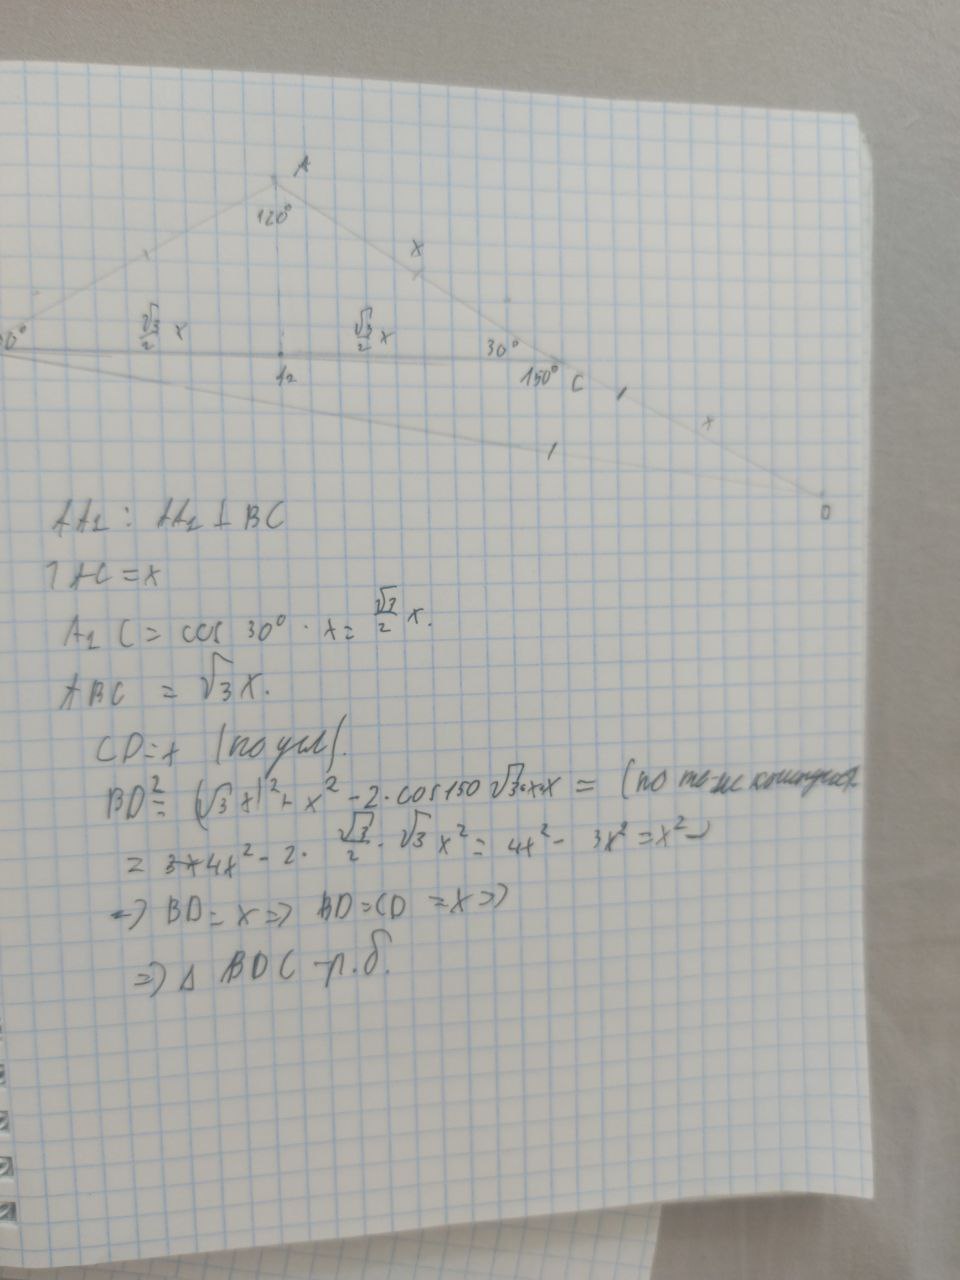 A
120°
x
0°
√3/2 x
√3/2 x
30°
150° C
A₁
x
D
AA₁ : AA₁ ⊥ BC
] AC = x
A₁ C = cos 30° · x = √3/2 x.
BC = √3 x.
CD = x (по усл).
BD² = (√3 x)² + x² - 2 · cos 150 √3 · x · x = (по т-ме косинусов
= 4x² - 2 · √3/2 · √3 x² = 4x² - 3x² = x² =>
=> BD = x => BD = CD = x =>
=> Δ BDC - р.б.